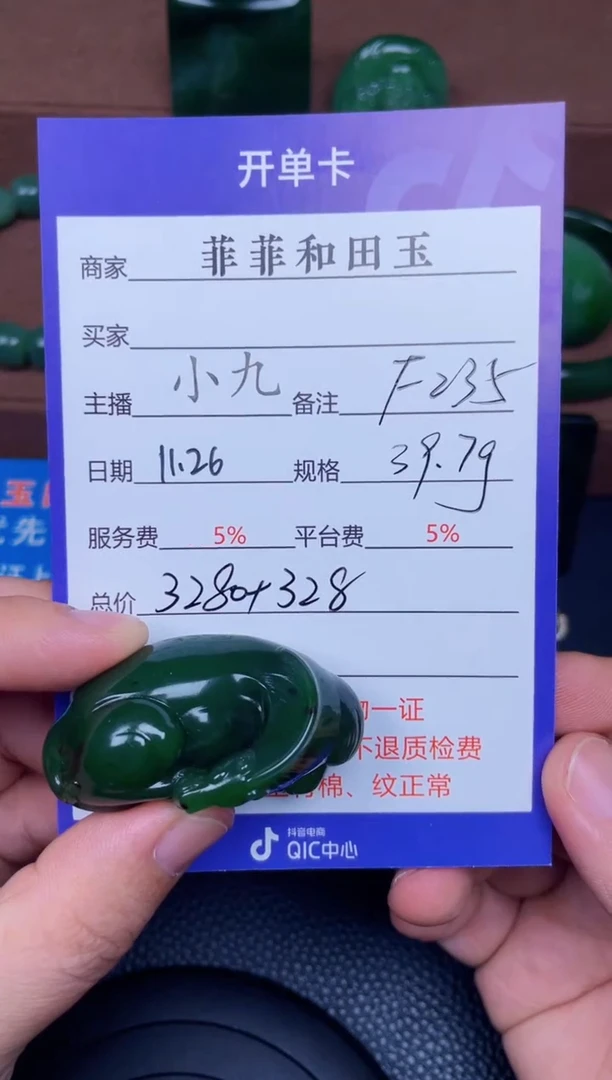 开单卡
商家 菲菲和田玉
买家
主播 小九 备注 F235
日期 11.26 规格 39.7g
服务费 5% 平台费 5%
总价 3280+328
一证
不退质检费
棉、纹正常
抖音电商
QIC中心
玉
先